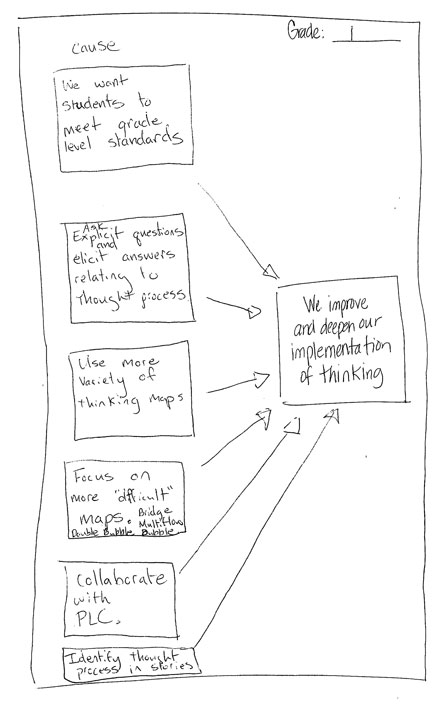 Grade: 1
cause
We want
students to
meet grade
level standards
Ask
Explicit questions
and
elicit answers
relating to
thought process
Use more
variety of
thinking maps
Focus on
more "difficult"
maps. Bridge
Multiflow
Double Bubble, Bubble
Collaborate
with
PLC.
Identify thought
process in stories
We improve
and deepen our
implementation
of thinking